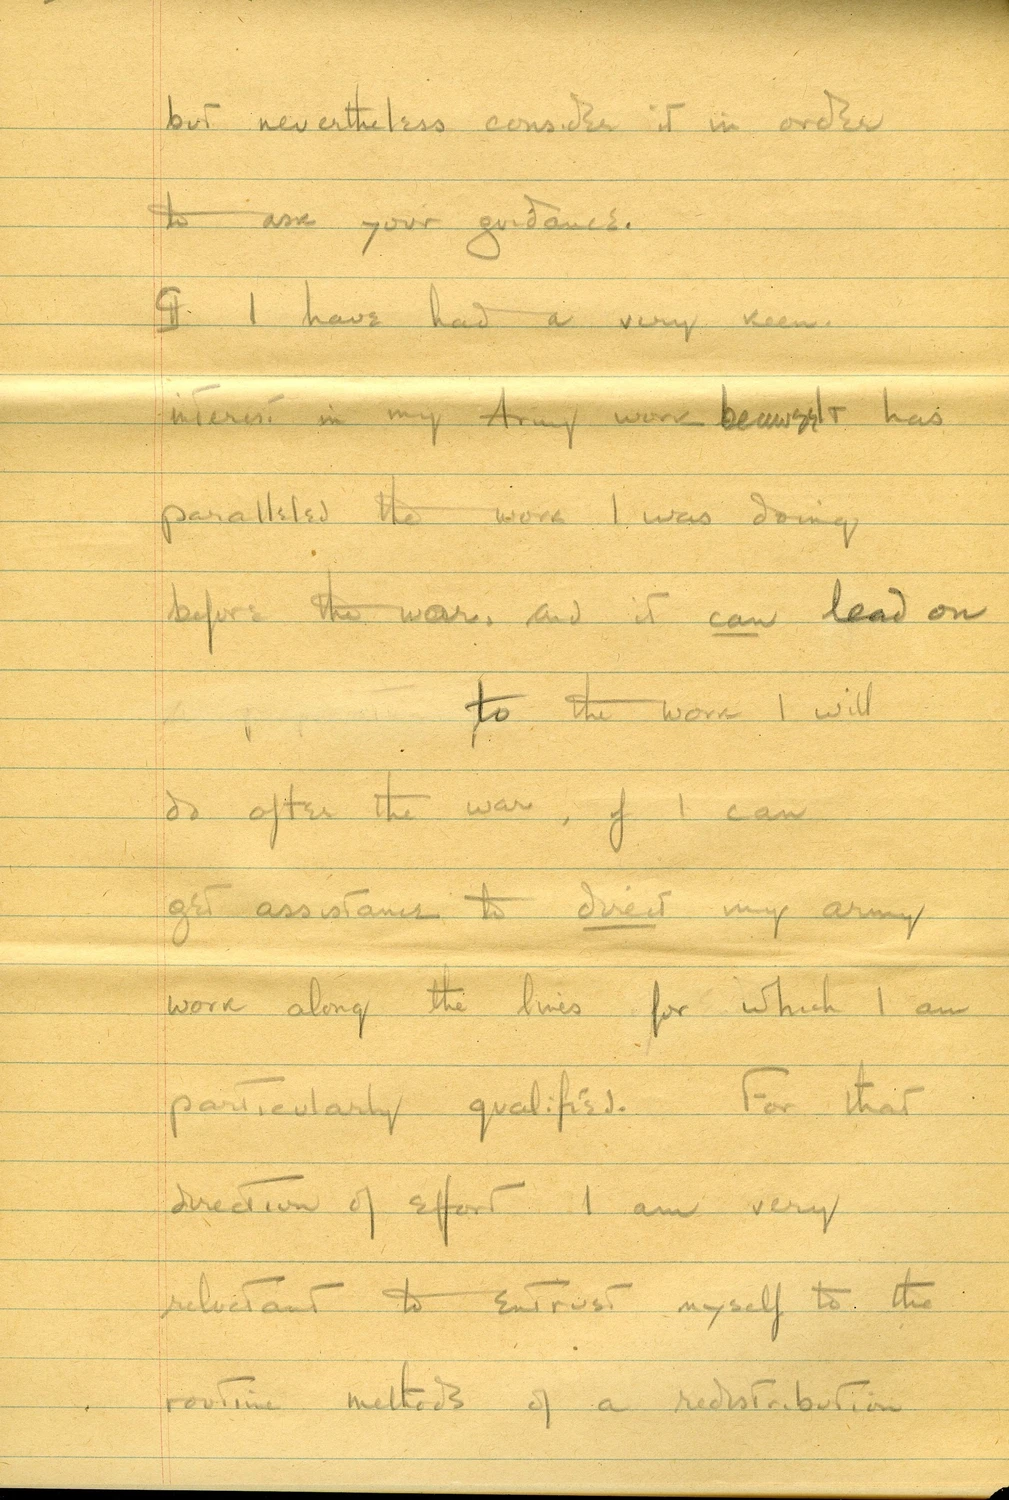 but nevertheless consider it in order
to ask your guidance.
¶ I have had a very keen
interest in my Army work because it has
paralleled the work I was doing
before the war, and it can lead on
to the work I will
do after the war, if I can
get assistance to direct my army
work along the lines for which I am
particularly qualified. For that
direction of effort I am very
reluctant to entrust myself to the
routine methods of a redistribution